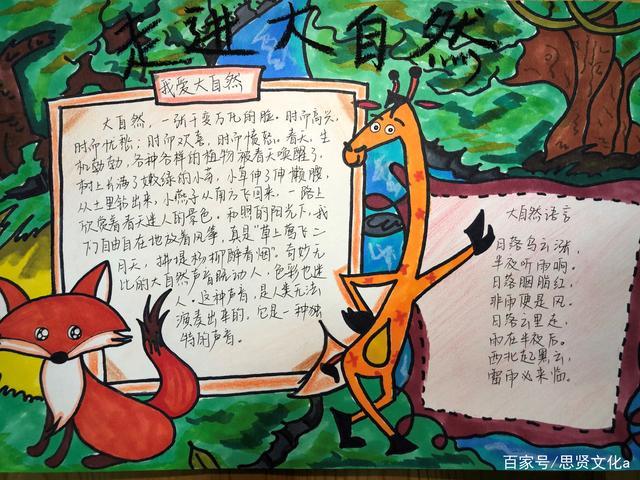 走进大自然
我爱大自然
大自然，一张千变万化的脸。时而高兴，
时而忧愁；时而欢喜，时而愤怒。春天，生
机勃勃，各种各样的植物被春天唤醒了，
树上长满了嫩绿的小芽，小草伸了伸懒腰，
从土里钻出来，小燕子从南方飞回来，一路上
欣赏着春天迷人的景色。和煦的阳光下，我
们自由自在地放着风筝，真是“草上莺飞二
月天，拂堤杨柳醉春烟”。奇妙无
比的大自然声音脆动人，色彩也迷
人。这种声音，是人类无法
演奏出来的，它是一种独
特的声音。
大自然语言
日落乌云涨，
半夜听雨响。
日落胭脂红，
非雨便是风。
日落云里走，
雨在半夜后。
西北起黑云，
雷雨必来临。
百家号/思贤文化a